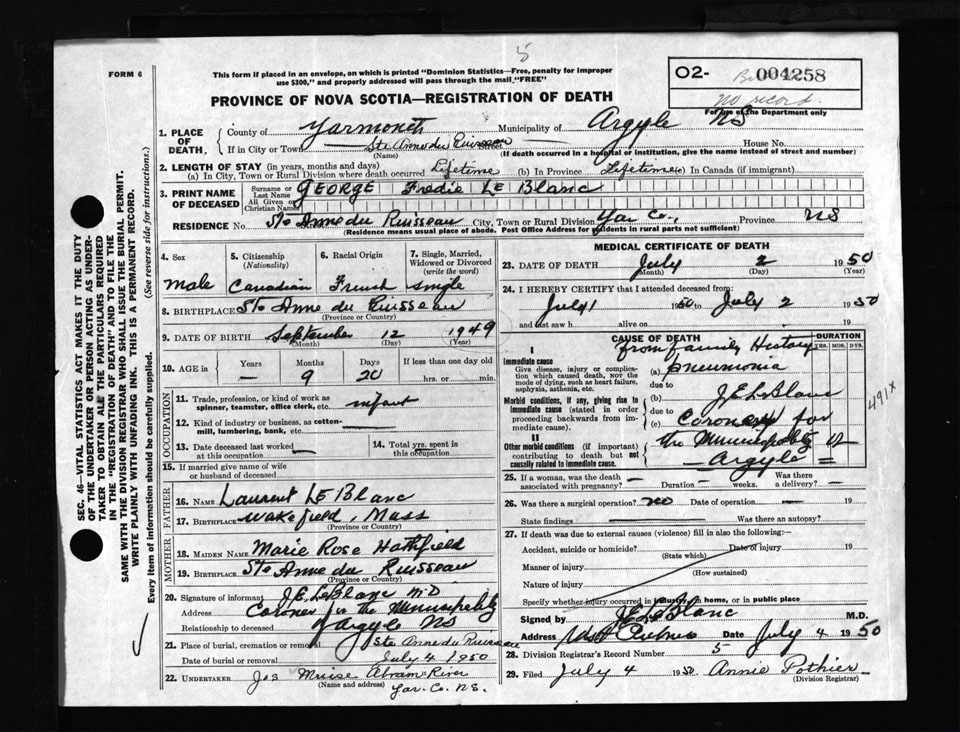 5
FORM 6
This form if placed in an envelope, on which is printed "Dominion Statistics—Free, penalty for improper
use $300," and properly addressed will pass through the mail, "FREE"
O2- 004258
no record.
For use of the Department only
PROVINCE OF NOVA SCOTIA—REGISTRATION OF DEATH
1. PLACE OF DEATH, County of Yarmouth Municipality of Argyle NS
If in City or Town Ste Anne du Ruisseau Street House No.
(Name) (If death occurred in a hospital or institution, give the name instead of street and number)
2. LENGTH OF STAY (in years, months and days)
(a) In City, Town or Rural Division where death occurred Lifetime (b) In Province Lifetime (c) In Canada (if immigrant)
3. PRINT NAME OF DECEASED Surname or Last Name GEORGE Fredie LE Blanc
All Given or Christian Names
RESIDENCE No. Ste Anne du Ruisseau City, Town or Rural Division Yar Co., Province NS
(Residence means usual place of abode. Post Office Address for residents in rural parts not sufficient)
4. Sex 5. Citizenship (Nationality) 6. Racial Origin 7. Single, Married, Widowed or Divorced (write the word)
Male Canadian French single
8. BIRTHPLACE Ste Anne du Ruisseau
(Province or Country)
9. DATE OF BIRTH September 12 1949
(Month) (Day) (Year)
10. AGE in Years Months Days If less than one day old
— 9 20 hrs. or min.
OCCUPATION
11. Trade, profession, or kind of work as spinner, teamster, office clerk, etc. infant
12. Kind of industry or business, as cotton-mill, lumbering, bank, etc.
13. Date deceased last worked at this occupation
14. Total yrs. spent in this occupation
15. If married give name of wife or husband of deceased
FATHER
16. NAME Laurent LE Blanc
17. BIRTHPLACE Wakefield, Mass
(Province or Country)
MOTHER
18. MAIDEN NAME Marie Rose Hatfield
19. BIRTHPLACE Ste Anne du Ruisseau
(Province or Country)
20. Signature of informant J.E. LeBlanc MD
Address Coroner for the Municipality
Relationship to deceased of Argyle NS
21. Place of burial, cremation or removal Ste Anne du Ruisseau
Date of burial or removal July 4 1950
22. UNDERTAKER Jos Muise Abram River
(Name and address) Yar. Co. N.S.
MEDICAL CERTIFICATE OF DEATH
23. DATE OF DEATH July 2 1950
(Month) (Day) (Year)
24. I HEREBY CERTIFY that I attended deceased from:
July 1 1950 to July 2 1950
and last saw h alive on 19
CAUSE OF DEATH DURATION
YRS. MOS. DYS.
from family History
I
Immediate cause
Give disease, injury or complication which caused death, NOT the mode of dying, such as heart failure, asphyxia, asthenia, etc.
(a) pneumonia
due to
Morbid conditions, if any, giving rise to immediate cause (stated in order proceeding backwards from immediate cause).
(b) J.E. LeBlanc
due to
(c) Coroner for
II
Other morbid conditions (if important) contributing to death but not causally related to immediate cause.
the Municipality of
— Argyle =
491X
25. If a woman, was the death associated with pregnancy? — Duration — weeks. Was there a delivery? -
26. Was there a surgical operation? no Date of operation — 19
State findings Was there an autopsy?
27. If death was due to external causes (violence) fill in also the following:
Accident, suicide or homicide? Date of injury 19
(State which)
Manner of injury
(How sustained)
Nature of injury
Specify whether injury occurred in industry, in home, or in public place
Signed by J.E. LeBlanc M.D.
Address Date July 4 1950
28. Division Registrar's Record Number 5
29. Filed July 4 1950 Annie Pothier
(Division Registrar)
SEC. 46—VITAL STATISTICS ACT MAKES IT THE DUTY
OF THE UNDERTAKER OR PERSON ACTING AS UNDERTAKER TO OBTAIN ALL THE PARTICULARS REQUIRED
IN THE "REGISTRATION OF DEATH" AND TO FILE THE
SAME WITH THE DIVISION REGISTRAR WHO SHALL ISSUE THE BURIAL PERMIT.
WRITE PLAINLY WITH UNFADING INK. THIS IS A PERMANENT RECORD.
Every item of information should be carefully supplied. (See reverse side for instructions.)